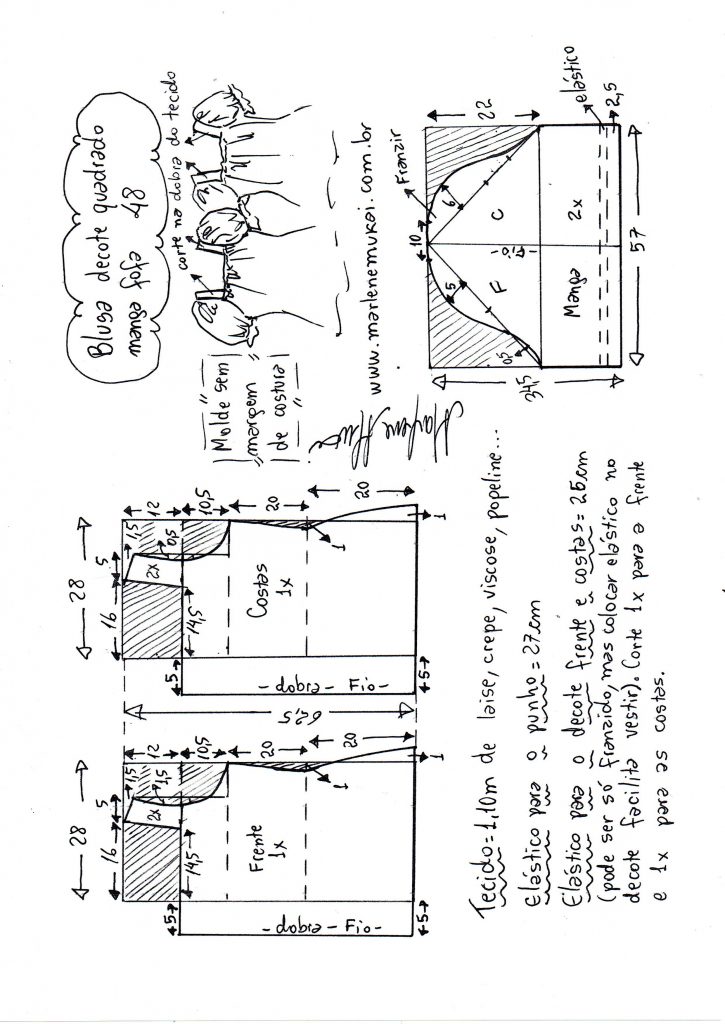 Blusa decote quadrado
manga fofa 48
corte na dobra do tecido
Molde sem
margem
de costura
www.marlenemukai.com.br
Marlene Mukai
28
16
5
1,5
12
0,5
2x
10,5
14,5
5
Costas
1x
20
20
1
1
- dobra - Fio -
5
62,5
28
16
5
1,5
12
1,5
2x
10,5
14,5
5
Frente
1x
20
20
1
1
- dobra - Fio -
5
Franzir
10
22
6
5
0,5
F
C
-Fio-
Manga
2x
34,5
elástico
2,5
57
Tecido=1,10m de laise, crepe, viscose, popeline...
Elástico para o punho=27cm
Elástico para o decote frente e costas=25cm
(pode ser só franzido, mas colocar elástico no
decote facilita vestir). Corte 1x para a frente
e 1x para as costas.